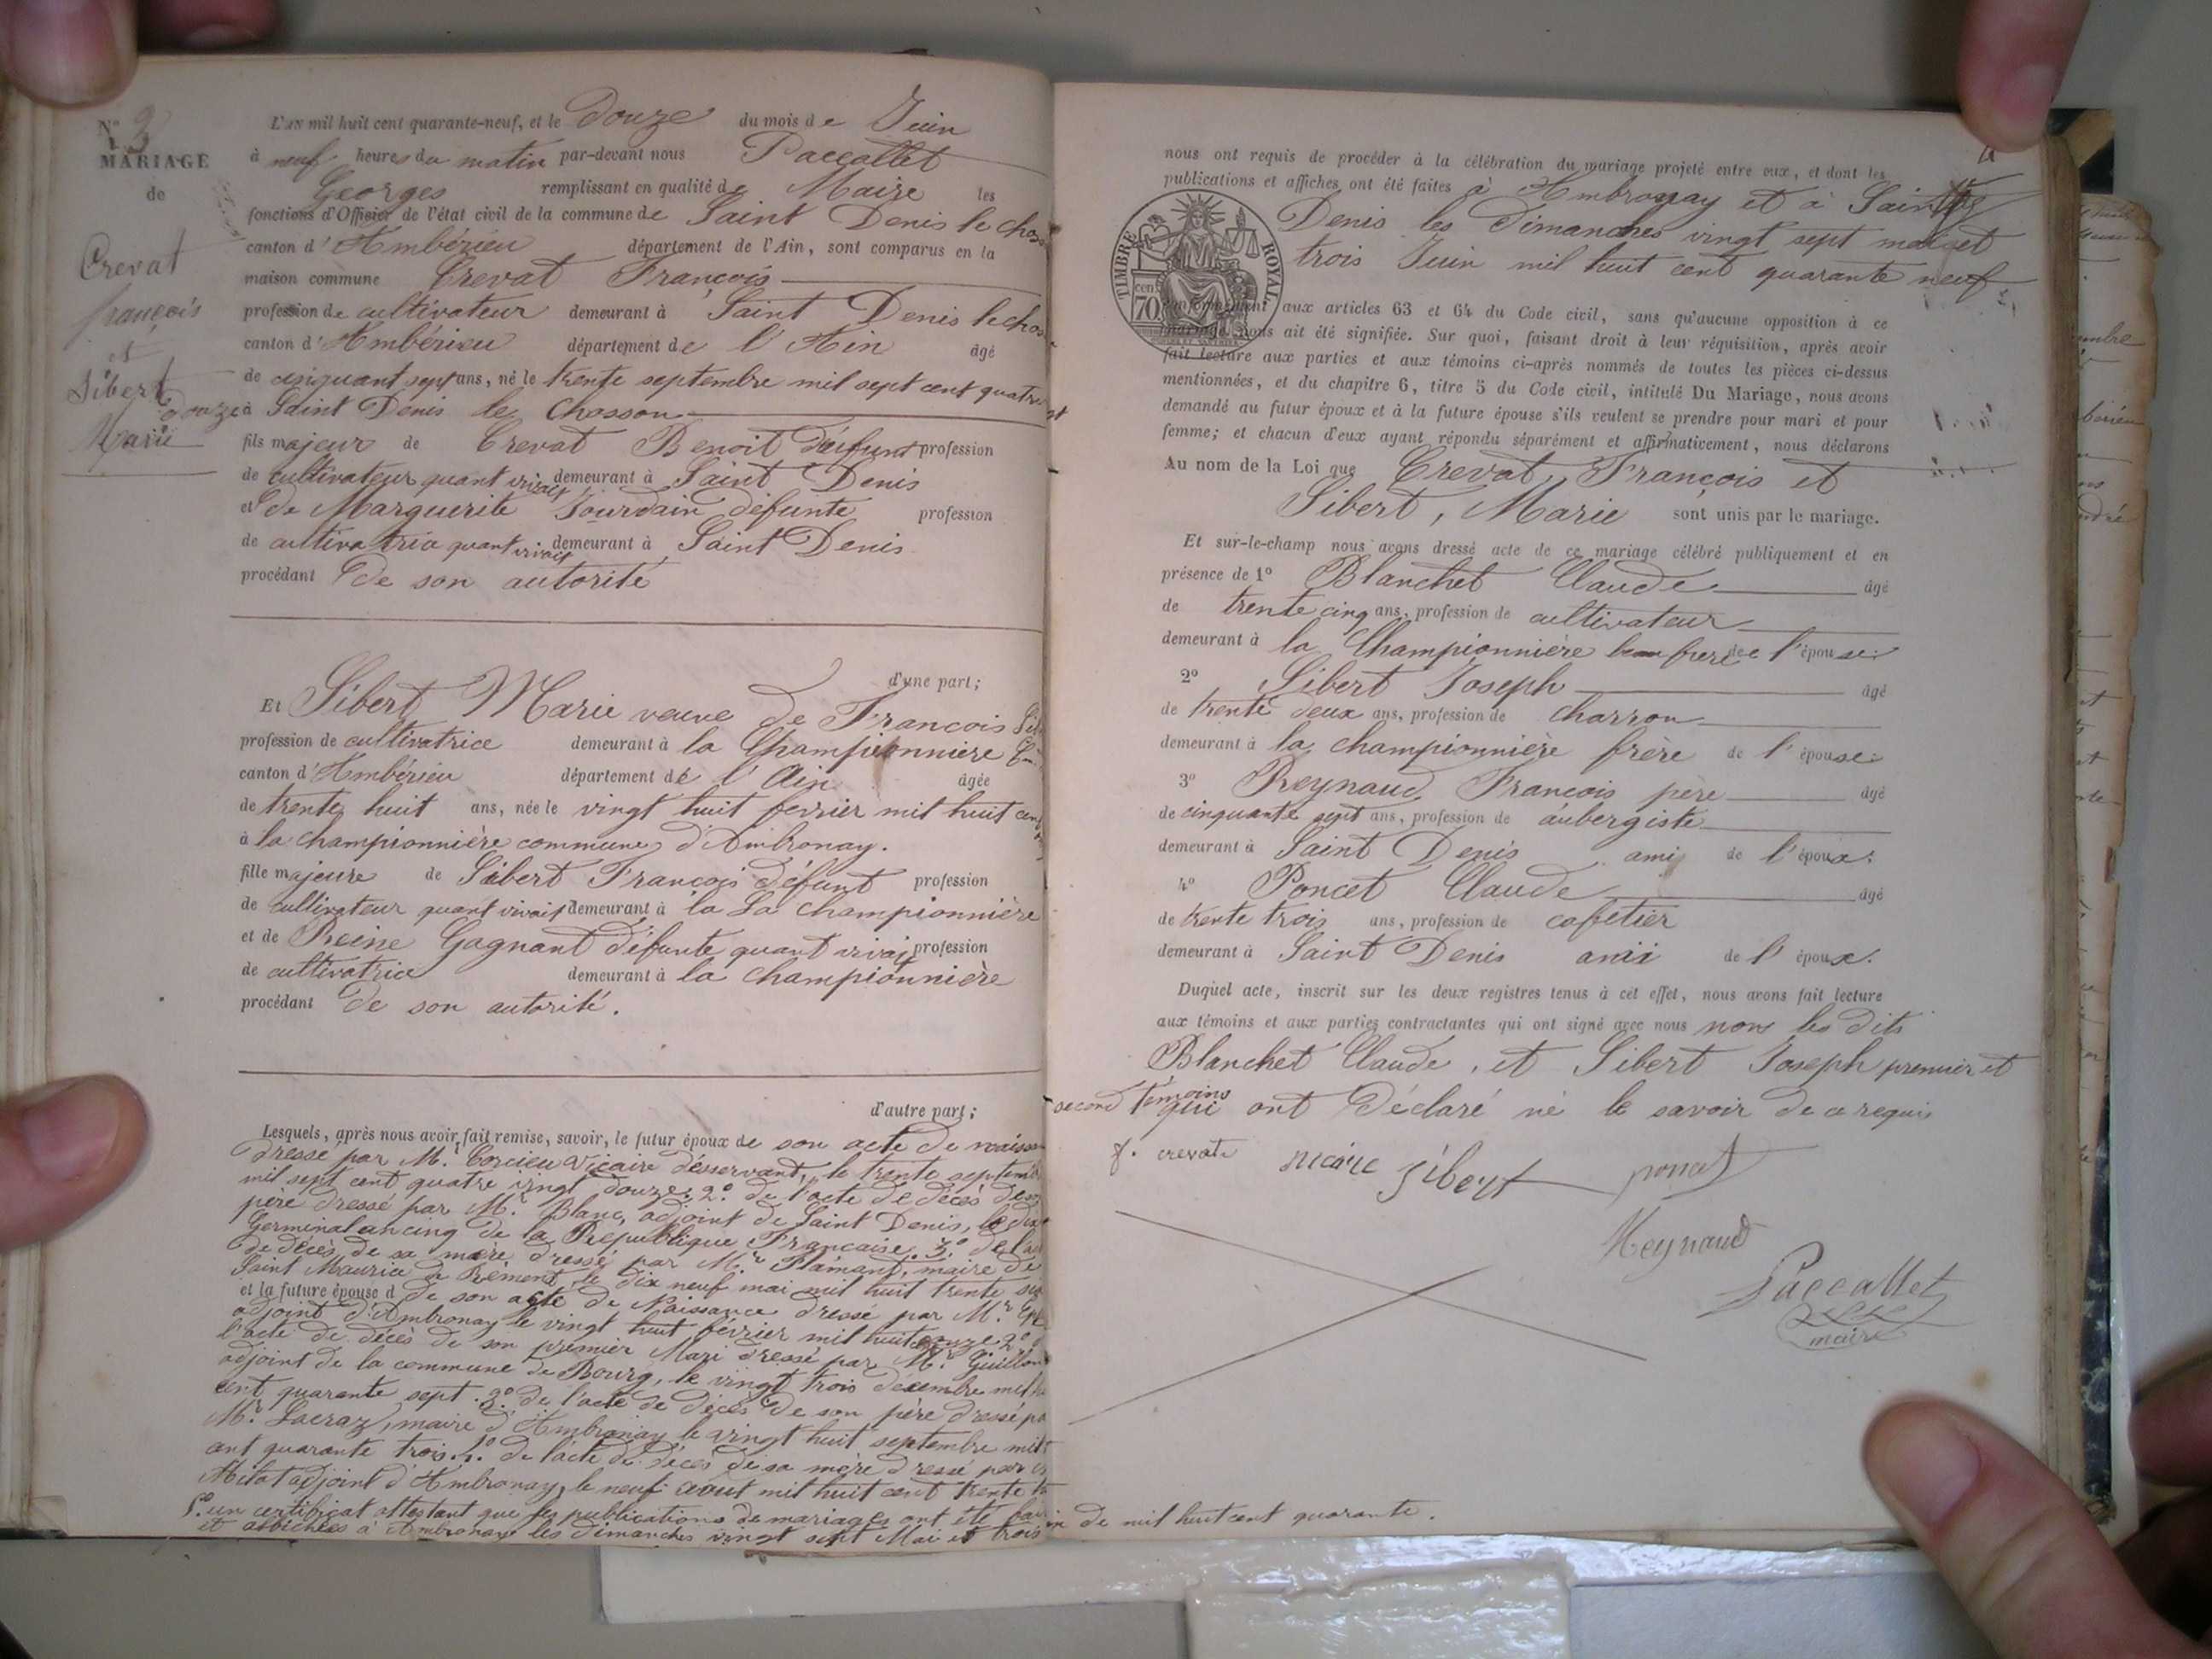 N° 3
MARIAGE
de
Crevat
françois
et
Sibert
Marie
L'AN mil huit cent quarante-neuf, et le Douze du mois de Juin
à neuf heures du matin par-devant nous Paccallet
Georges remplissant en qualité de Maire les
fonctions d'Officier de l'état civil de la commune de Saint Denis le chos
canton d'Ambérieu département de l'Ain, sont comparus en la
maison commune Crevat François
profession de cultivateur demeurant à Saint Denis le chos
canton d'Ambérieu département de l'Ain âgé
de cinquant sept ans, né le trente septembre mil sept cent quatre
douze à Saint Denis le Chosson
fils majeur de Crevat Benoit défunt profession
de cultivateur quant vivait demeurant à Saint Denis
et de Marguerite Jourdain défunte profession
de cultivatrice quant vivait demeurant à Saint Denis
procédant de son autorité
d'une part;
Et Sibert Marie veuve de François
profession de cultivatrice demeurant à la Championnière
canton d'Ambérieu département de l'Ain âgée
de trente huit ans, née le vingt huit fevrier mil huit cent
à la championnière commune d'Ambronay.
fille majeure de Sibert François défunt profession
de cultivateur quant vivait demeurant à la La championnière
et de Reine Gagnant défunte quant vivait profession
de cultivatrice demeurant à la championnière
procédant de son autorité.
d'autre part;
Lesquels, après nous avoir fait remise, savoir, le futur époux de son acte de naissan
dressé par M.r vicaire désservant, le trente septemb
mil sept cent quatre vingt douze. 2.° de l'acte de décès de son
père dressé par M.r Blanc, adjoint de Saint Denis, le dix
Germinal an cinq de la République Française. 3.° de l'ac
de décès de sa mère dressé par M.r Flamant, maire de
Saint Maurice de Rément, le dix neuf mai mil huit trente
et la future épouse d de son acte de Naissance dressé par M.r
adjoint d'Ambronay le vingt huit février mil huit onze 2.°
l'acte de décès de son premier Mari dressé par M.r Guillon
adjoint de la commune de Bourg, le vingt trois décembre mil h
cent quarante sept. 3.° de l'acte de décès de son père dressé pa
M.r Lacraz, maire d'Ambronay le vingt huit septembre mil
cent quarante trois. 4.° de l'acte de décès de sa mère dressé par
adjoint d'Ambronay, le neuf aout mil huit cent trente
5.° un certificat attestant que les publications de mariages ont été fait
et affichées à Ambronay les Dimanches vingt sept Mai et trois juin de mil huit cent quarante.
nous ont requis de procéder à la célébration du mariage projeté entre eux, et dont les
publications et affiches ont été faites à Ambronay et à Saint
Denis les Dimanches vingt sept mai et
trois Juin mil huit cent quarante neuf
TIMBRE ROYAL
cen 70
conformément aux articles 63 et 64 du Code civil, sans qu'aucune opposition à ce
mariage nous ait été signifiée. Sur quoi, faisant droit à leur réquisition, après avoir
fait lecture aux parties et aux témoins ci-après nommés de toutes les pièces ci-dessus
mentionnées, et du chapitre 6, titre 5 du Code civil, intitulé Du Mariage, nous avons
demandé au futur époux et à la future épouse s'ils veulent se prendre pour mari et pour
femme; et chacun d'eux ayant répondu séparément et affirmativement, nous déclarons
Au nom de la Loi que Crevat, François et
Sibert, Marie sont unis par le mariage.
Et sur-le-champ nous avons dressé acte de ce mariage célébré publiquement et en
présence de 1° Blanchet Claude âgé
de trente cinq ans, profession de cultivateur
demeurant à la Championnière beau frère de l'épouse
2° Sibert Joseph âgé
de trente deux ans, profession de charron
demeurant à la championnière frère de l'épouse
3° Reynaud François père âgé
de cinquante sept ans, profession de aubergiste
demeurant à Saint Denis ami de l'époux.
4° Poncet Claude âgé
de trente trois ans, profession de cafetier
demeurant à Saint Denis ami de l'époux.
Duquel acte, inscrit sur les deux registres tenus à cet effet, nous avons fait lecture
aux témoins et aux parties contractantes qui ont signé avec nous non les dits
Blanchet Claude, et Sibert Joseph premier et
second témoins qui ont déclaré né le savoir de ce requis
f. crevat
poncet
Reynaud
Paccallet
maire